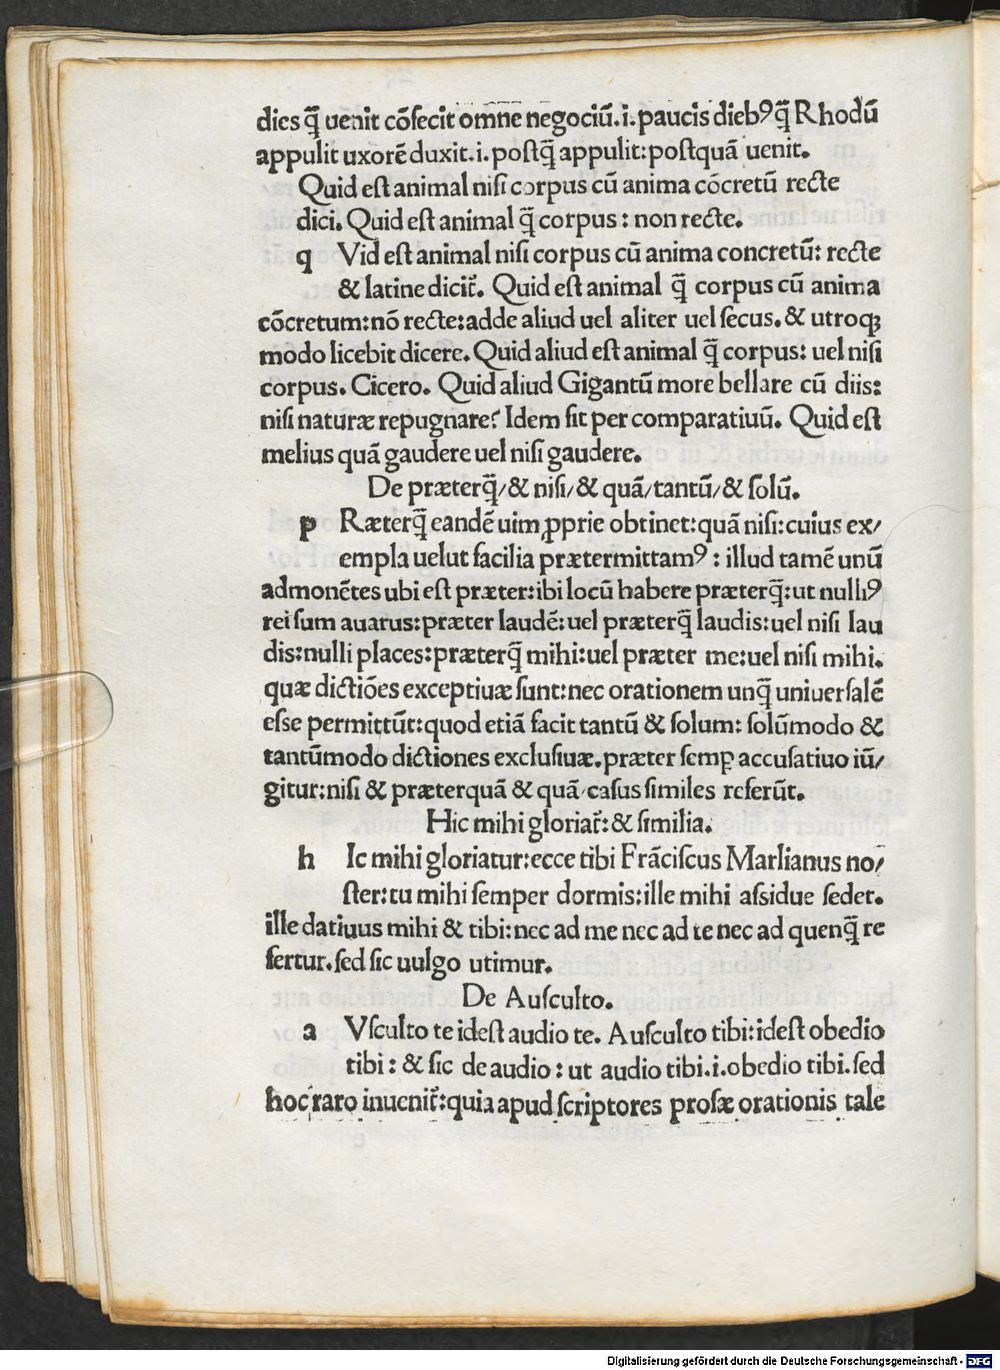 dies q̃ uenit cõfecit omne negociũ.i.paucis dieb⁹q̃ Rhodũ
appulit uxorẽ duxit.i.poſtq̃ appulit:poſtquã uenit.
Quid eſt animal niſi corpus cũ anima cõcretũ recte
dici. Quid eſt animal q̃ corpus : non recte.
q Vid eſt animal niſi corpus cũ anima concretũ: recte
& latine dicit̃. Quid eſt animal q̃ corpus cũ anima
cõcretum:nõ recte:adde aliud uel aliter uel ſecus. & utroqꝫ
modo licebit dicere. Quid aliud eſt animal q̃ corpus: uel niſi
corpus. Cicero. Quid aliud Gigantũ more bellare cũ diis:
niſi naturæ repugnare? Idem fit per comparatiuũ. Quid eſt
melius quã gaudere uel niſi gaudere.
De præterq̃/& niſi/& quã/tantũ/& ſolũ.
p Ræterq̃ eandẽ uim ꝓprie obtinet:quã niſi:cuius ex/
empla uelut facilia prætermittam⁹ : illud tamẽ unũ
admonẽtes ubi eſt præter:ibi locũ habere præterq̃:ut nulli⁹
rei ſum auarus:præter laudẽ:uel præterq̃ laudis:uel niſi lau
dis:nulli places:præterq̃ mihi:uel præter me:uel niſi mihi.
quæ dictiões exceptiuæ ſunt:nec orationem unq̃ uniuerſalẽ
eſſe permittũt:quod etiã facit tantũ & ſolum: ſolũmodo &
tantũmodo dictiones excluſiuæ.præter ſemꝑ accuſatiuo iũ/
gitur:niſi & præterquã & quã/caſus ſimiles referũt.
Hic mihi gloriat̃: & ſimilia.
h Ic mihi gloriatur:ecce tibi Frãciſcus Marlianus no/
ſter:tu mihi ſemper dormis:ille mihi aſſidue ſedet.
ille datiuus mihi & tibi:nec ad me nec ad te nec ad quenq̃ re
fertur.ſed ſic uulgo utimur.
De Auſculto.
a Vſculto te ideſt audio te. Auſculto tibi:ideſt obedio
tibi : & ſic de audio : ut audio tibi.i.obedio tibi.ſed
hoc raro inuenit̃:quia apud ſcriptores proſæ orationis tale
Digitalisierung gefördert durch die Deutsche Forschungsgemeinschaft - DFG